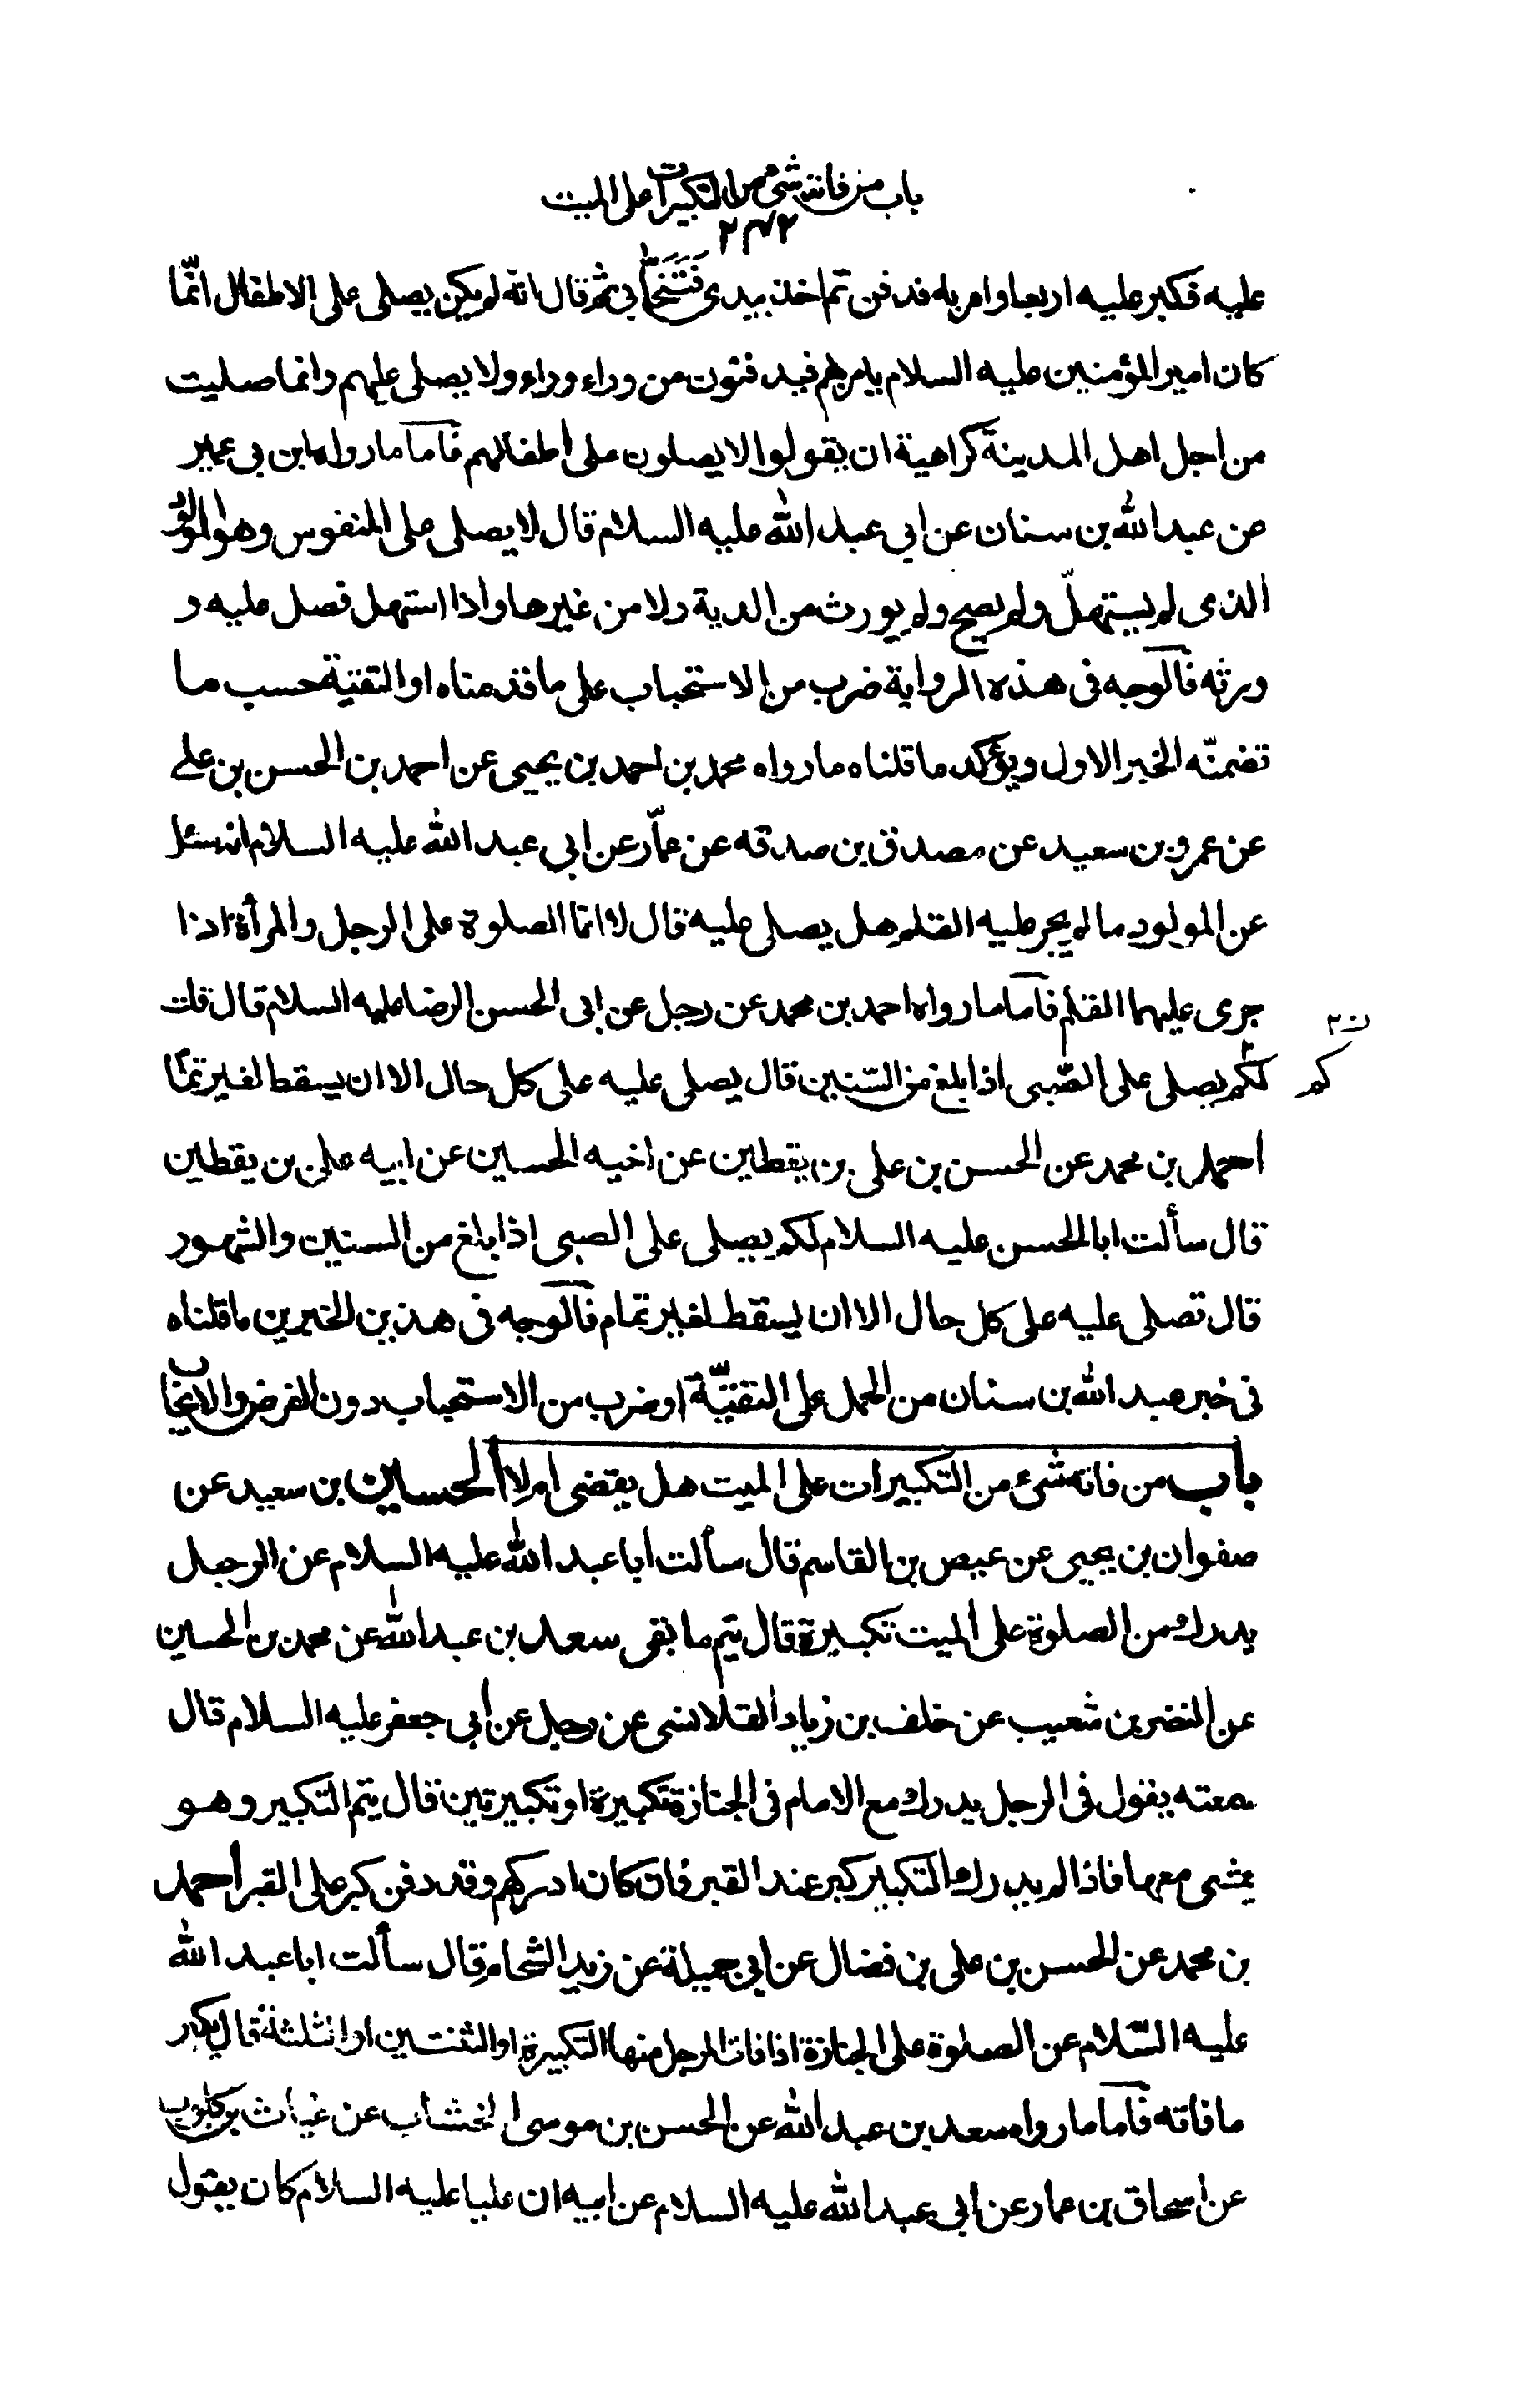 باب من فاته شيء من التكبيرات على الميت
٢٤٢
عليه فكبر عليه اربعا وامر به فدفن ثم اخذ بيدى فتنحّا بي ثم قال انه لم يكن يصلى على الاطفال انّما
كان امير المؤمنين عليه السلام يامر بهم فيدفنون من وراء وراء ولا يصلى عليهم وانما صليت
من اجل اهل المدينة كراهية ان يقولوا لا يصلون على اطفالهم فاما ما رواه ابن بي عمير
عن عبد الله بن سنان عن ابي عبد الله عليه السلام قال لا يصلى على المنفوس وهو المولود
الذى لم يستهلّ ولم يصح ولم يورث من الدية ولا من غيرها واذا استهل فصل عليه و
ورثه فالوجه فى هذه الرواية ضرب من الاستحباب على ما قدمناه او التقيّة حسب ما
تضمنّه الخبر الاول ويؤكد ما قلناه ما رواه محمد بن احمد بن يحيى عن احمد بن الحسن بن على
عن عمرو بن سعيد عن مصدق بن صدقه عن عمّار عن ابي عبد الله عليه السلام انه سئل
عن المولود ما لم يجر عليه القلم هل يصلى عليه قال لا انما الصلوة على الرجل والمرأة اذا
جرى عليهما القلم فاما ما رواه احمد بن محمد عن رجل عن ابى الحسن الرضا عليه السلام قال قلت
لكم يصلى على الصّبى اذا بلغ من السّنين قال يصلى عليه على كل حال الا ان يسقط لغير تمام
كم
ن٢
احمد بن محمد عن الحسن بن على بن يقطين عن اخيه الحسين عن ابيه على بن يقطين
قال سألت ابا الحسن عليه السلام لكم يصلى على الصبى اذا بلغ من السنين والشهور
قال تصلى عليه على كل حال الا ان يسقط لغير تمام فالوجه فى هذين الخبرين ما قلناه
فى خبر عبد الله بن سنان من الحمل على التقيّة او ضرب من الاستحباب دون الفرض والايجاب
باب من فاته شىء من التكبيرات على الميت هل يقضى ام لا الحسين بن سعيد عن
صفوان بن يحيى عن عيص بن القاسم قال سألت ابا عبد الله عليه السلام عن الرجل
يدرك من الصلوة على الميت تكبيرة قال يتم ما بقى سعد بن عبد الله عن محمد بن الحسين
عن النضر بن شعيب عن خلف بن زياد القلانسى عن رجل عن أبى جعفر عليه السلام قال
سمعته يقول فى الرجل يدرك مع الامام فى الجنازة تكبيرة او تكبيرتين قال يتم التكبير وهو
يمشى معها فاذا لم يدرك التكبير كبر عند القبر فان كان ادركهم وقد دفن كبر على القبر احمد
بن محمد عن الحسن بن على بن فضال عن ابي جميلة عن زيد الشحام قال سألت ابا عبد الله
عليه السّلام عن الصلوة على الجنازة اذا فات الرجل منها التكبيرة او الثنتين او الثلثة قال يكبر
ما فاته فاما ما رواه سعد بن عبد الله عن الحسن بن موسى الخشاب عن غياث بن كلوب
عن اسحاق بن عمار عن ابى عبد الله عليه السلام عن ابيه ان عليا عليه السلام كان يقول